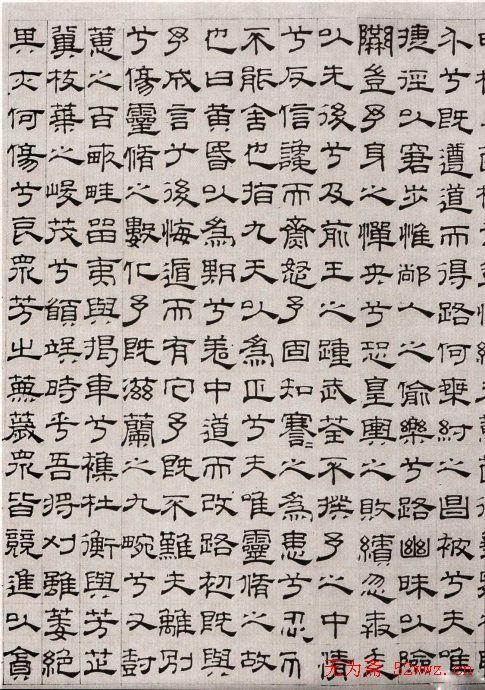 介兮既遵道而得路何桀紂之昌被兮夫唯
捷徑以窘步惟人之偷樂兮路幽昧以險
隘豈予身之憚央兮恐皇輿之敗績忽奔走
以先後兮及前王之踵武荃不揆予之中情
兮反信讒而齌怒予固知謇〻之為患兮忍而
不能舍也指九天以為正兮夫唯靈脩之故
也曰黃昏以為期兮羌中道而改路初既與
予成言兮後悔遁而有它予既不難夫離別
兮傷靈脩之數化予既滋蘭之九畹兮又樹
蕙之百畝畦留夷與揭車兮襍杜衡與芳芷
冀枝葉之峻茂兮願竢時乎吾將刈雖萎絕
其亦何傷兮哀眾芳之蕪薉眾皆競進以貪
无为斋 52wwz.cn